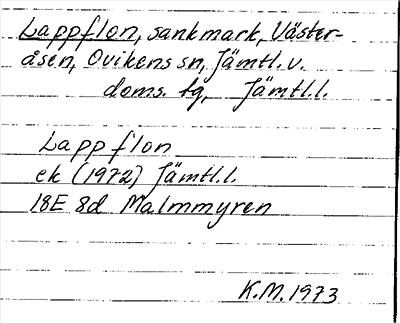 Lappflon, sankmark, Väster-
åsen, Ovikens sn, Jämtl. v.
doms. tg, Jämtl.l.
Lappflon
ek (1972) Jämtl.l.
18E 8d Malmmyren
K.M. 1973